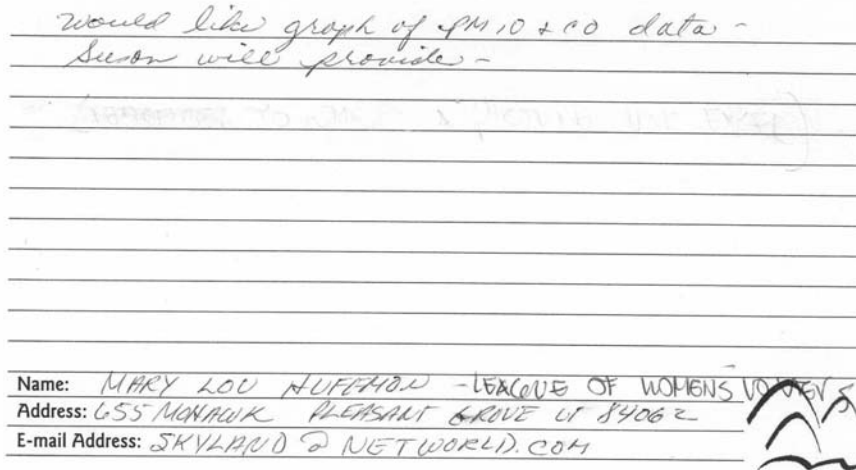 would like graph of PM10 & CO data -
Susan will provide -
Name: MARY LOU HUFFMON - LEAGUE OF WOMENS VOTERS
Address: 655 MOHAWK PLEASANT GROVE UT 84062
E-mail Address: SKYLAND @ NETWORLD.COM